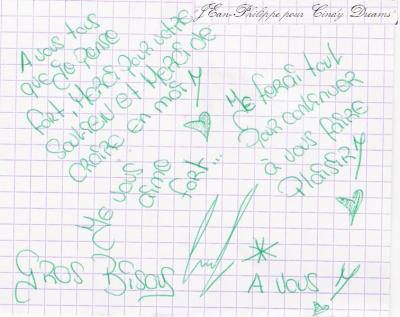 JEan-Philippe pour Cindy Dreams
A vous tous
que je pense
fort, Merci pour votre
soutien et Merci de
croire en moi !!
Je ferai tout
pour continuer
à vous faire
plaisir !!
Je vous
aime
fort...
GROS Bisous
A vous !!